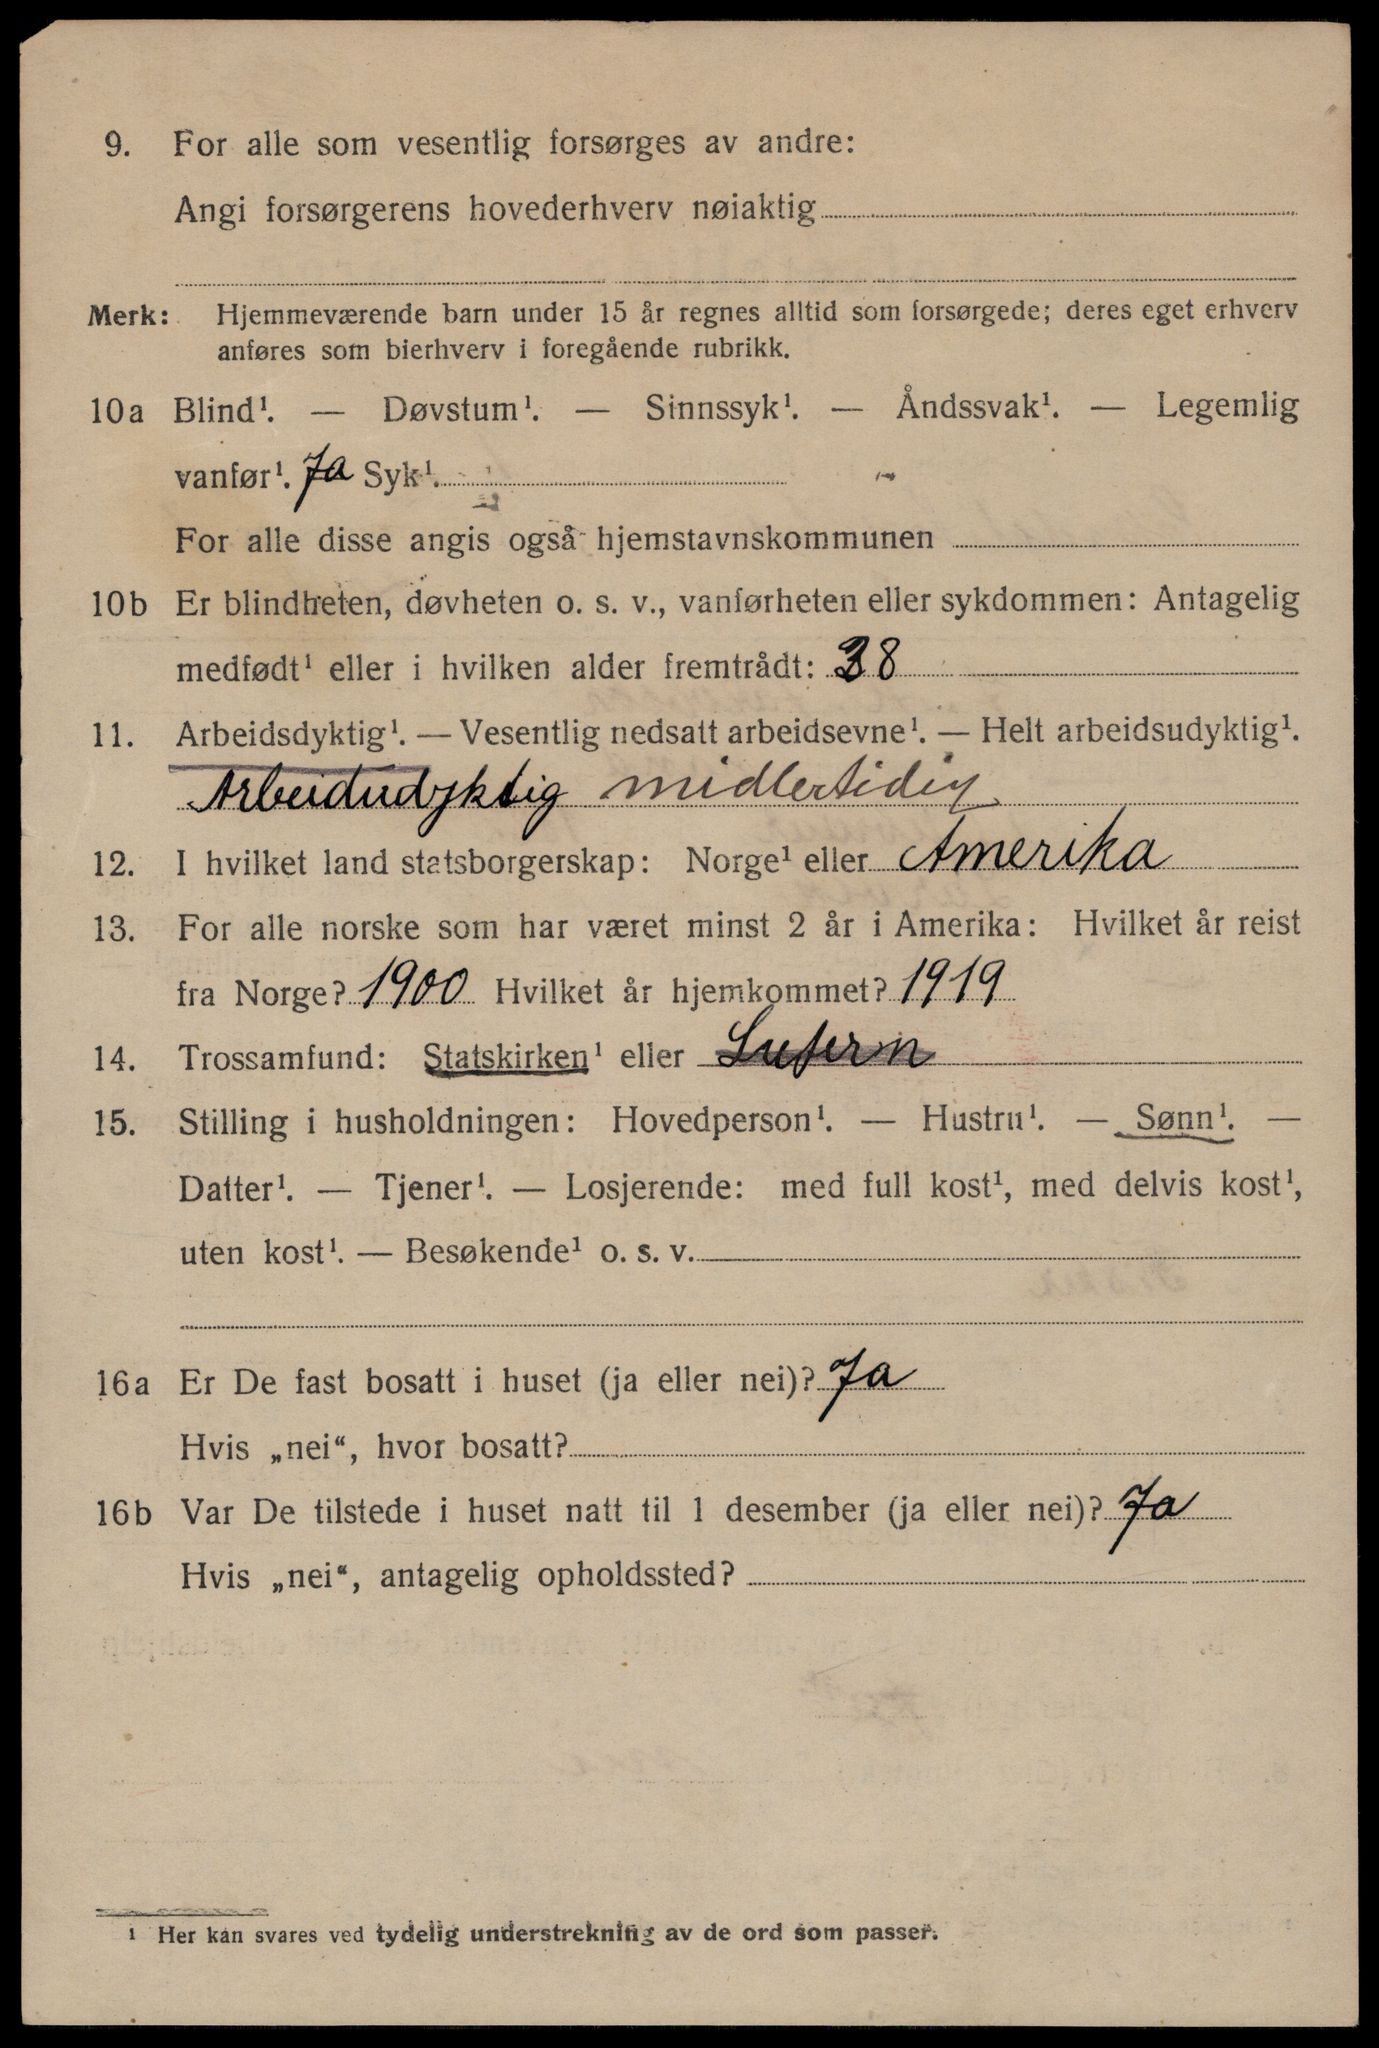 9. For alle som vesentlig forsørges av andre:
Angi forsørgerens hovederhverv nøiaktig
Merk: Hjemmeværende barn under 15 år regnes alltid som forsørgede; deres eget erhverv
anføres som bierhverv i foregående rubrikk.
10a Blind¹. — Døvstum¹. — Sinnssyk¹. — Åndssvak¹. — Legemlig
vanfør¹. Ja Syk¹.
For alle disse angis også hjemstavnskommunen
10b Er blindheten, døvheten o. s. v., vanførheten eller sykdommen: Antagelig
medfødt¹ eller i hvilken alder fremtrådt: 38
11. Arbeidsdyktig¹. — Vesentlig nedsatt arbeidsevne¹. — Helt arbeidsudyktig¹.
Arbeidudyktig midlertidig
12. I hvilket land statsborgerskap: Norge¹ eller Amerika
13. For alle norske som har været minst 2 år i Amerika: Hvilket år reist
fra Norge? 1900 Hvilket år hjemkommet? 1919
14. Trossamfund: Statskirken¹ eller Lutern
15. Stilling i husholdningen: Hovedperson¹. — Hustru¹. — Sønn¹. —
Datter¹. — Tjener¹. — Losjerende: med full kost¹, med delvis kost¹,
uten kost¹. — Besøkende¹ o. s. v.
16a Er De fast bosatt i huset (ja eller nei)? Ja
Hvis „nei“, hvor bosatt?
16b Var De tilstede i huset natt til 1 desember (ja eller nei)? Ja
Hvis „nei“, antagelig opholdssted?
¹ Her kan svares ved tydelig understrekning av de ord som passer.